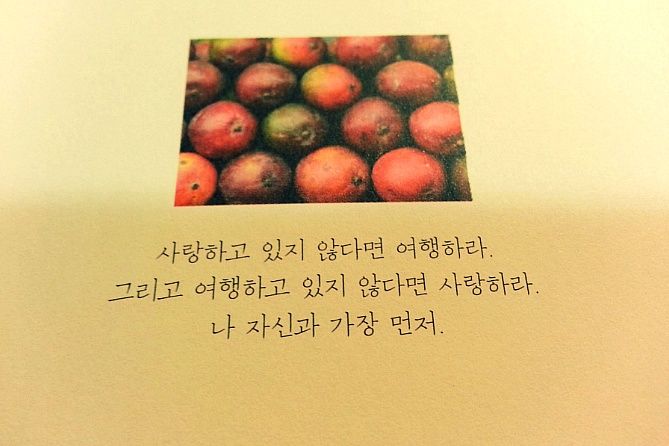 사랑하고 있지 않다면 여행하라.
그리고 여행하고 있지 않다면 사랑하라.
나 자신과 가장 먼저.